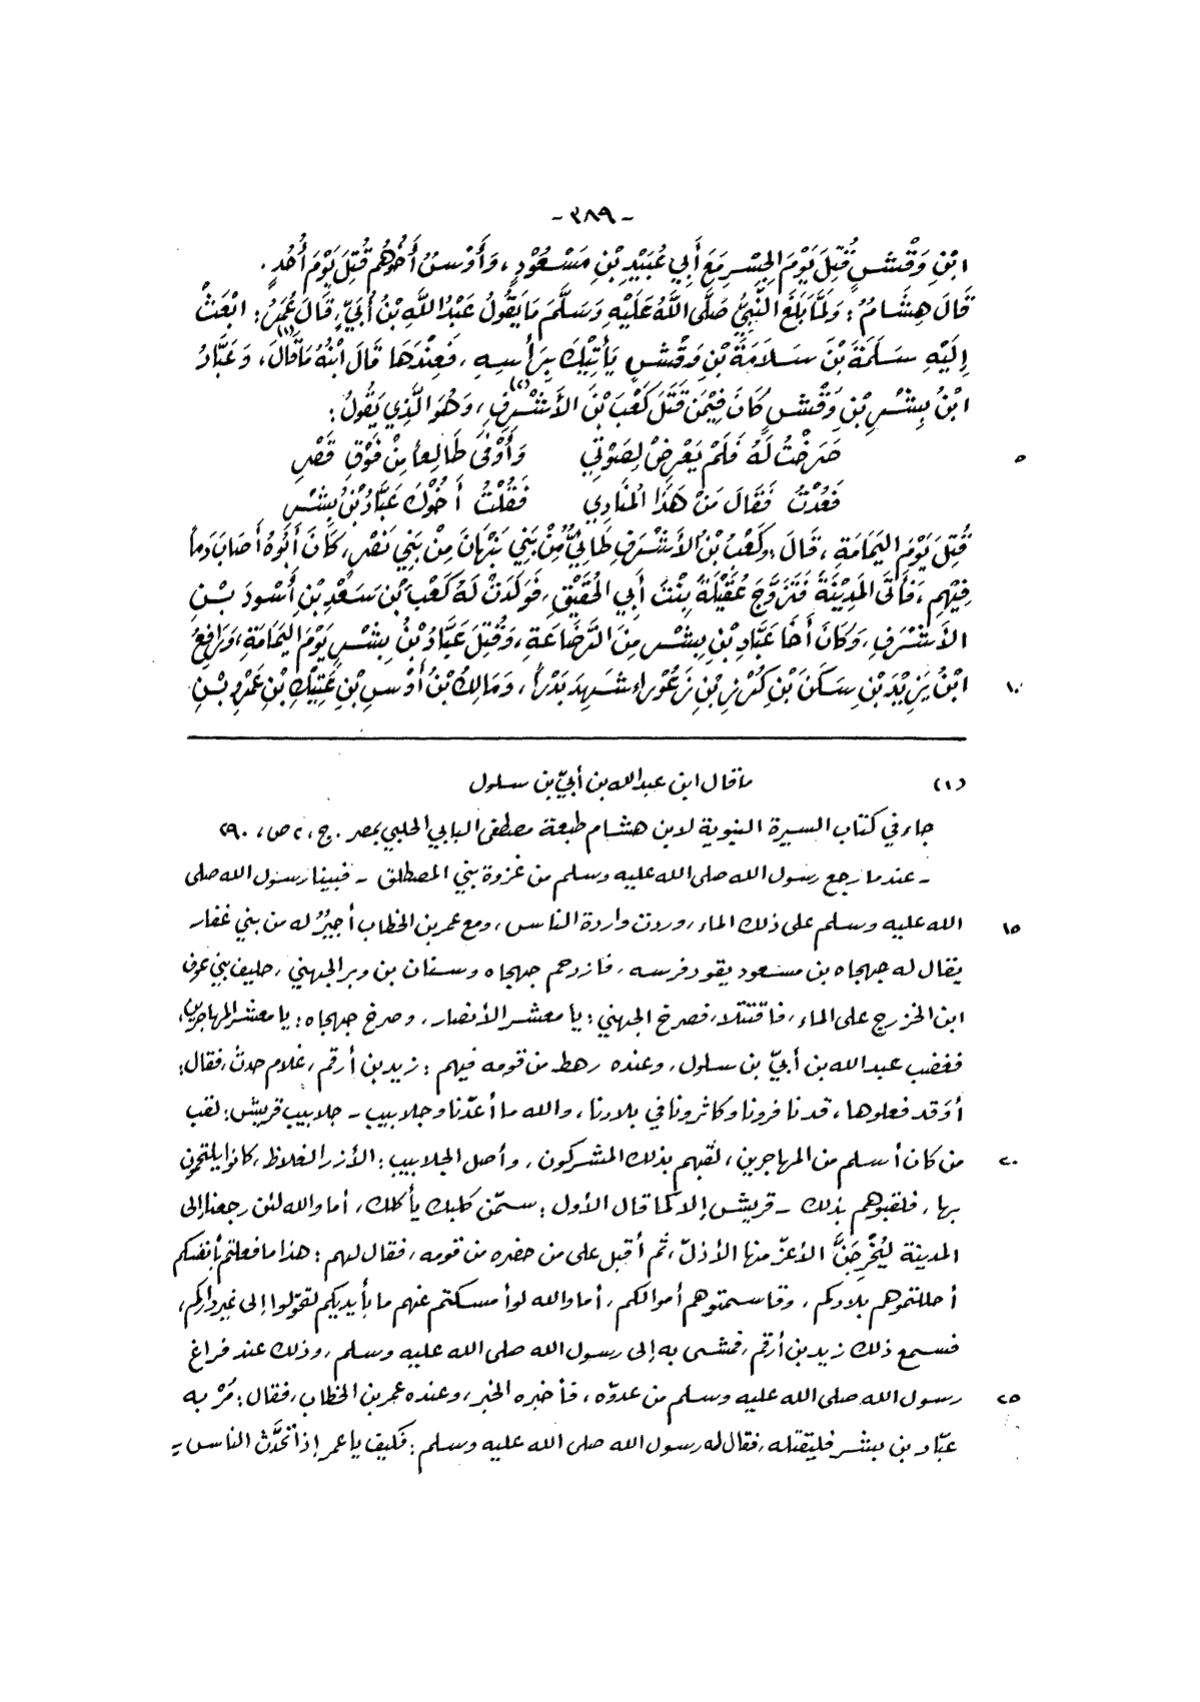 - ٣٨٩ -
ابْنِ وَقْشٍ قُتِلَ يَوْمَ الجِسْرِ مَعَ أَبِي عُبَيْدِ بْنِ مَسْعُودٍ، وَأَوْسُ أَخُوهُم قُتِلَ يَوْمَ أُحُدٍ.
قَالَ هِشَامُ: وَلَمَّا بَلَغَ النَّبِيَّ صَلَّى اللَّهُ عَلَيْهِ وَسَلَّمَ مَا يَقُولُ عَبْدُ اللَّهِ بْنُ أُبَيٍّ، قَالَ عُمَرُ: ابْعَثْ
إِلَيْهِ سَلَمَةَ بْنَ سَلَامَةَ بْنِ وَقْشٍ يَأْتِيْكَ بِرَأْسِهِ، فَعِنْدَهَا قَالَ ابْنُهُ مَا قَالَ(١)، وَعَبَّادُ
ابْنُ بِشْرِ بْنِ وَقْشٍ كَانَ فِيْمَن قَتَلَ كَعْبَ بْنَ الأَشْرَفِ(٢)، وَهُوَ الَّذِي يَقُولُ:
٥ صَرَخْتُ لَهُ فَلَمْ يَعْرِضْ لِصَوْتِي وَأَوْفَى طَالِعاً مِنْ فَوْقِ قَصْرِ
فَعُدْتُ فَقَالَ مَنْ هَذَا الْمُنَادِي فَقُلْتُ أَخُوْكَ عَبَّادُ بْنُ بِشْرِ
قُتِلَ يَوْمَ اليَمَامَةِ، قَالَ: وَكَعْبُ بْنُ الأَشْرَفِ طَائِيٌّ مِنْ بَنِي نَبْهَانَ مِنْ بَنِي نَصْرٍ، كَانَ أَبُوهُ أَصَابَ دَماً
فِيْهِم، فَأَتَى المَدِيْنَةَ فَتَزَوَّجَ عُقَيْلَةَ بِنْتَ أَبِي الحُقَيْقِ، فَوَلَدَتْ لَهُ كَعْبَ بْنَ سَعْدِ بْنِ أُسْودَ بْنِ
الأَشْرَفِ، وَكَانَ أَخَا عَبَّادِ بْنِ بِشْرٍ مِنَ الرَّضَاعَةِ، وَقُتِلَ عَبَّادُ بْنُ بِشْرٍ يَوْمَ اليَمَامَةِ، وَرَافِعُ
١٠ ابْنُ يَزِيْدَ بْنِ سَكَنَ بْنِ كُرْزِ بْنِ زَعُوْرَاءَ شَهِدَ بَدْراً، وَمَالِكُ بْنُ أَوْسِ بْنِ عَتِيْكِ بْنِ عَمْرِو بْنِ
(١) ما قال ابن عبد الله بن أبيّ بن سلول
جاء في كتاب السيرة النبوية لابن هشام طبعة مصطفى البابي الحلبي بمصر. ج، ٢ ص، ٢٩٠
- عندما رجع رسول الله صلى الله عليه وسلم من غزوة بني المصطلق - فبينا رسول الله صلى
١٥ الله عليه وسلم على ذلك الماء، وردت واردة الناس، ومع عمر بن الخطاب أجيرٌ له من بني غفار
يقال له جهجاه بن مسعود يقود فرسه، فازدحم جهجاه وسنان بن وبر الجهني، حليف بني عوف
ابن الخزرج على الماء، فاقتتلا، فصرخ الجهني: يا معشر الأنصار، وصرخ جهجاه: يا معشر المهاجرين،
فغضب عبد الله بن أبيّ بن سلول، وعنده رهط من قومه فيهم: زيد بن أرقم، غلام حدثٌ، فقال:
أوَقد فعلوها، قد نافرونا وكاثرونا في بلادنا، والله ما أعدّنا وجلابيب - جلابيب قريش: لقب
٢٠ من كان أسلم من المهاجرين، لقبهم بذلك المشركون، وأصل الجلابيب: الأزر الغلاظ، كانوا يلتحفون
بها، فلقبوهم بذلك - قريش إلا كما قال الأول: سمّن كلبك يأكلك، أما والله لئن رجعنا إلى
المدينة ليُخْرِجَنَّ الأعزّ منها الأذلّ، ثم أقبل على من حضره من قومه، فقال لهم: هذا ما فعلتم بأنفسكم
أحللتموهم بلادكم، وقاسمتموهم أموالكم، أما والله لو أمسكتم عنهم ما بأيديكم لتحوّلوا إلى غير داركم،
فسمع ذلك زيد بن أرقم، فمشى به إلى رسول الله صلى الله عليه وسلم، وذلك عند فراغ
٢٥ رسول الله صلى الله عليه وسلم من عدوّه، فأخبره الخبر، وعنده عمر بن الخطاب، فقال: مُرْ به
عبّاد بن بشر فليقتله، فقال له رسول الله صلى الله عليه وسلم: فكيف يا عمر إذا تحدَّث الناس =